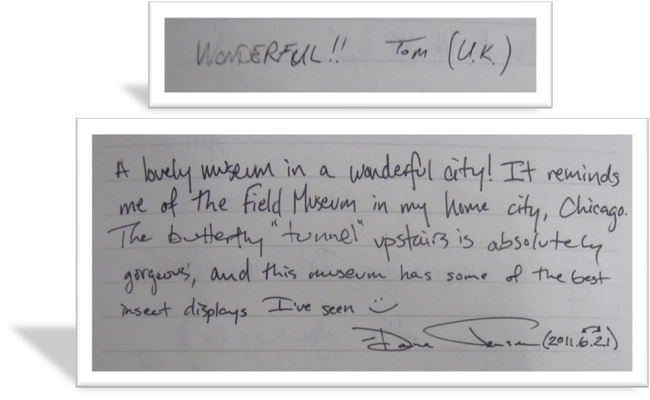 WONDERFUL!! Tom (U.K.)
A lovely museum in a wonderful city! It reminds
me of the Field Museum in my home city, Chicago.
The butterfly "tunnel" upstairs is absolutely
gorgeous, and this museum has some of the best
insect displays I've seen :)
(2011.6.21)